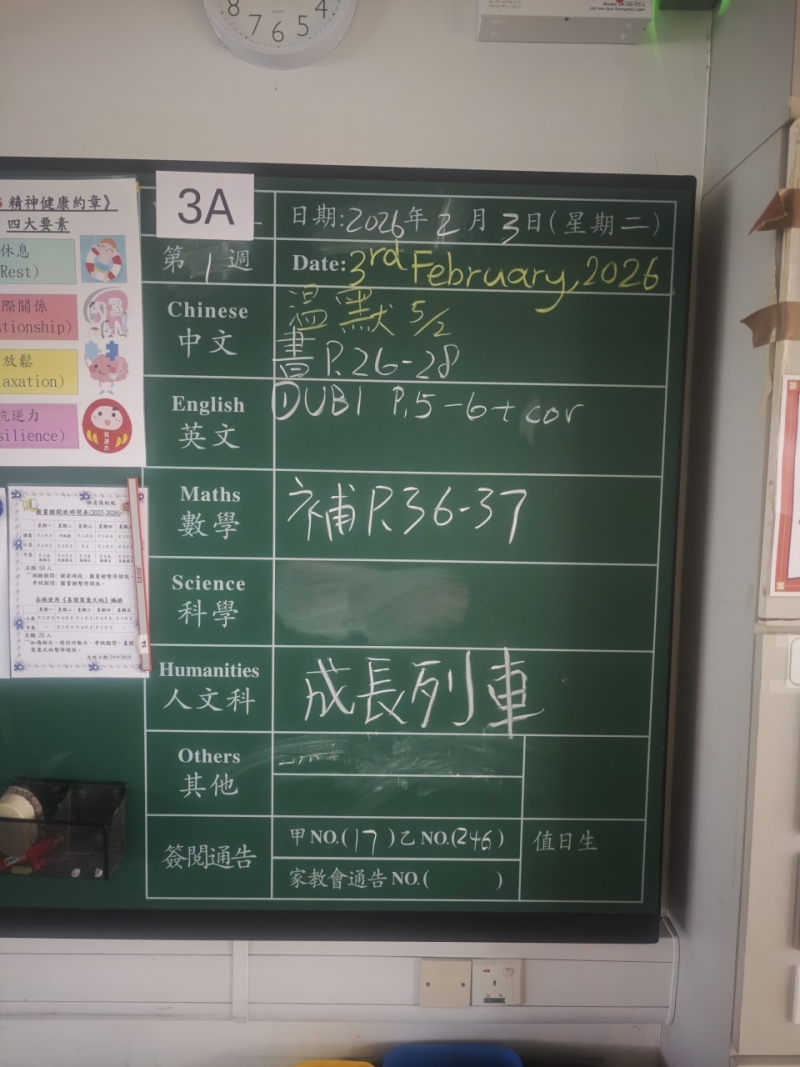 8 7 6 5 4
精神健康約章》
四大要素
休息
Rest)
際關係
ationship)
放鬆
axation)
抗逆力
silience)
3A
日期:2026年2月3日(星期二)
第1週
Date:3rd February, 2026
Chinese
中文
溫默 5/2
書P.26-28
English
英文
①UB1 P.5-6+cor
Maths
數學
補P.36-37
Science
科學
Humanities
人文科
成長列車
Others
其他
簽閱通告
甲NO.(17)乙NO.(246)
家教會通告NO.( )
值日生